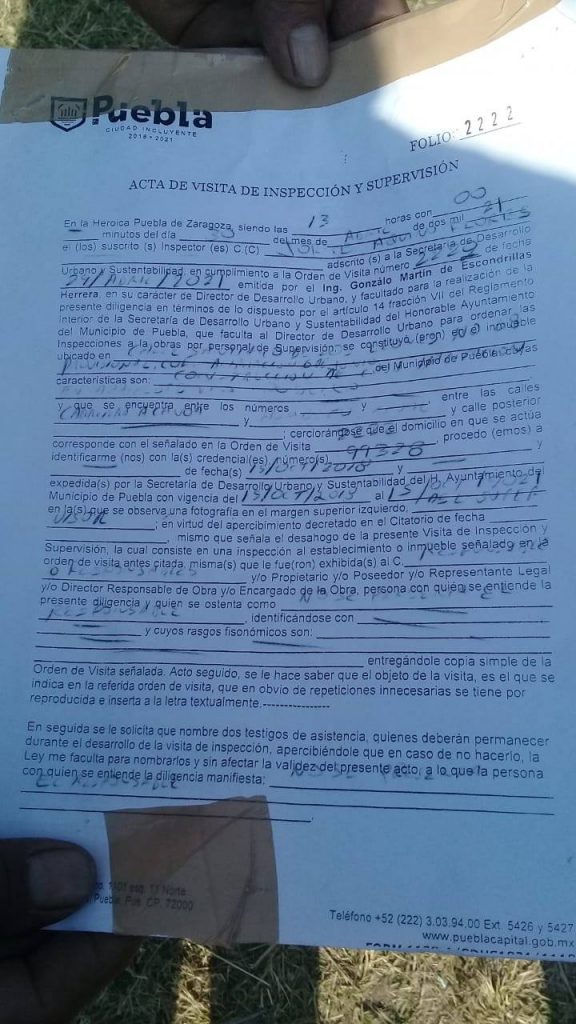 Puebla
CIUDAD INCLUYENTE
2018 - 2021
FOLIO: 2222
ACTA DE VISITA DE INSPECCIÓN Y SUPERVISIÓN
En la Heroica Puebla de Zaragoza, siendo las 13 horas con 00
minutos del día del mes de ABRIL de dos mil 21
el (los) suscrito (s) Inspector (es) C.(C) JORGE FLORES
adscrito (s) a la Secretaría de Desarrollo
Urbano y Sustentabilidad, en cumplimiento a la Orden de Visita número 2222 de fecha
29/ABRIL/2021 emitida por el Ing. Gonzálo Martín de Escondrillas
Herrera, en su carácter de Director de Desarrollo Urbano, y facultado para la realización de la
presente diligencia en términos de lo dispuesto por el artículo 14 fracción VII del Reglamento
Interior de la Secretaría de Desarrollo Urbano y Sustentabilidad del Honorable Ayuntamiento
del Municipio de Puebla, que faculta al Director de Desarrollo Urbano para ordenar las
Inspecciones a la obras por personal de Supervisión; se constituyo (eron) en el inmueble
ubicado en CALLE
del Municipio de Puebla, cuyas
características son:
y que se encuentra entre los números y entre las calles
y y calle posterior
; cerciorándose que el domicilio en que se actúa
corresponde con el señalado en la Orden de Visita, procedo (emos) a
identificarme (nos) con la(s) credencial(es) número(s) y
de fecha(s) 15/OCT/2018 y
expedida(s) por la Secretaría de Desarrollo Urbano y Sustentabilidad del H. Ayuntamiento del
Municipio de Puebla con vigencia del 15/OCT/2018 al 15/OCT/2021
en la(s) que se observa una fotografía en el margen superior izquierdo, DEL SUPER
VISOR; en virtud del apercibimiento decretado en el Citatorio de fecha
, mismo que señala el desahogo de la presente Visita de Inspección y
Supervisión, la cual consiste en una inspección al establecimiento o inmueble señalado en la
orden de visita antes citada, misma(s) que le fue(ron) exhibida(s) al C.
O RESPONSABLES y/o Propietario y/o Poseedor y/o Representante Legal
y/o Director Responsable de Obra y/o Encargado de la Obra, persona con quién se entiende la
presente diligencia y quien se ostenta como NO SE PRESENTA EL
RESPONSABLE, identificándose con
y cuyos rasgos fisonómicos son:
entregándole copia simple de la
Orden de Visita señalada. Acto seguido, se le hace saber que el objeto de la visita, es el que se
indica en la referida orden de visita, que en obvio de repeticiones innecesarias se tiene por
reproducida e inserta a la letra textualmente.---------------
En seguida se le solicita que nombre dos testigos de asistencia, quienes deberán permanecer
durante el desarrollo de la visita de inspección, apercibiéndole que en caso de no hacerlo, la
Ley me faculta para nombrarlos y sin afectar la validez del presente acto, a lo que la persona
con quien se entiende la diligencia manifiesta: NO SE PRESENTA
EL RESPONSABLE
1101 esq. 11 Norte
Puebla, Pue. CP. 72000
Teléfono +52 (222) 3.03.94.00 Ext. 5426 y 5427
www.pueblacapital.gob.mx